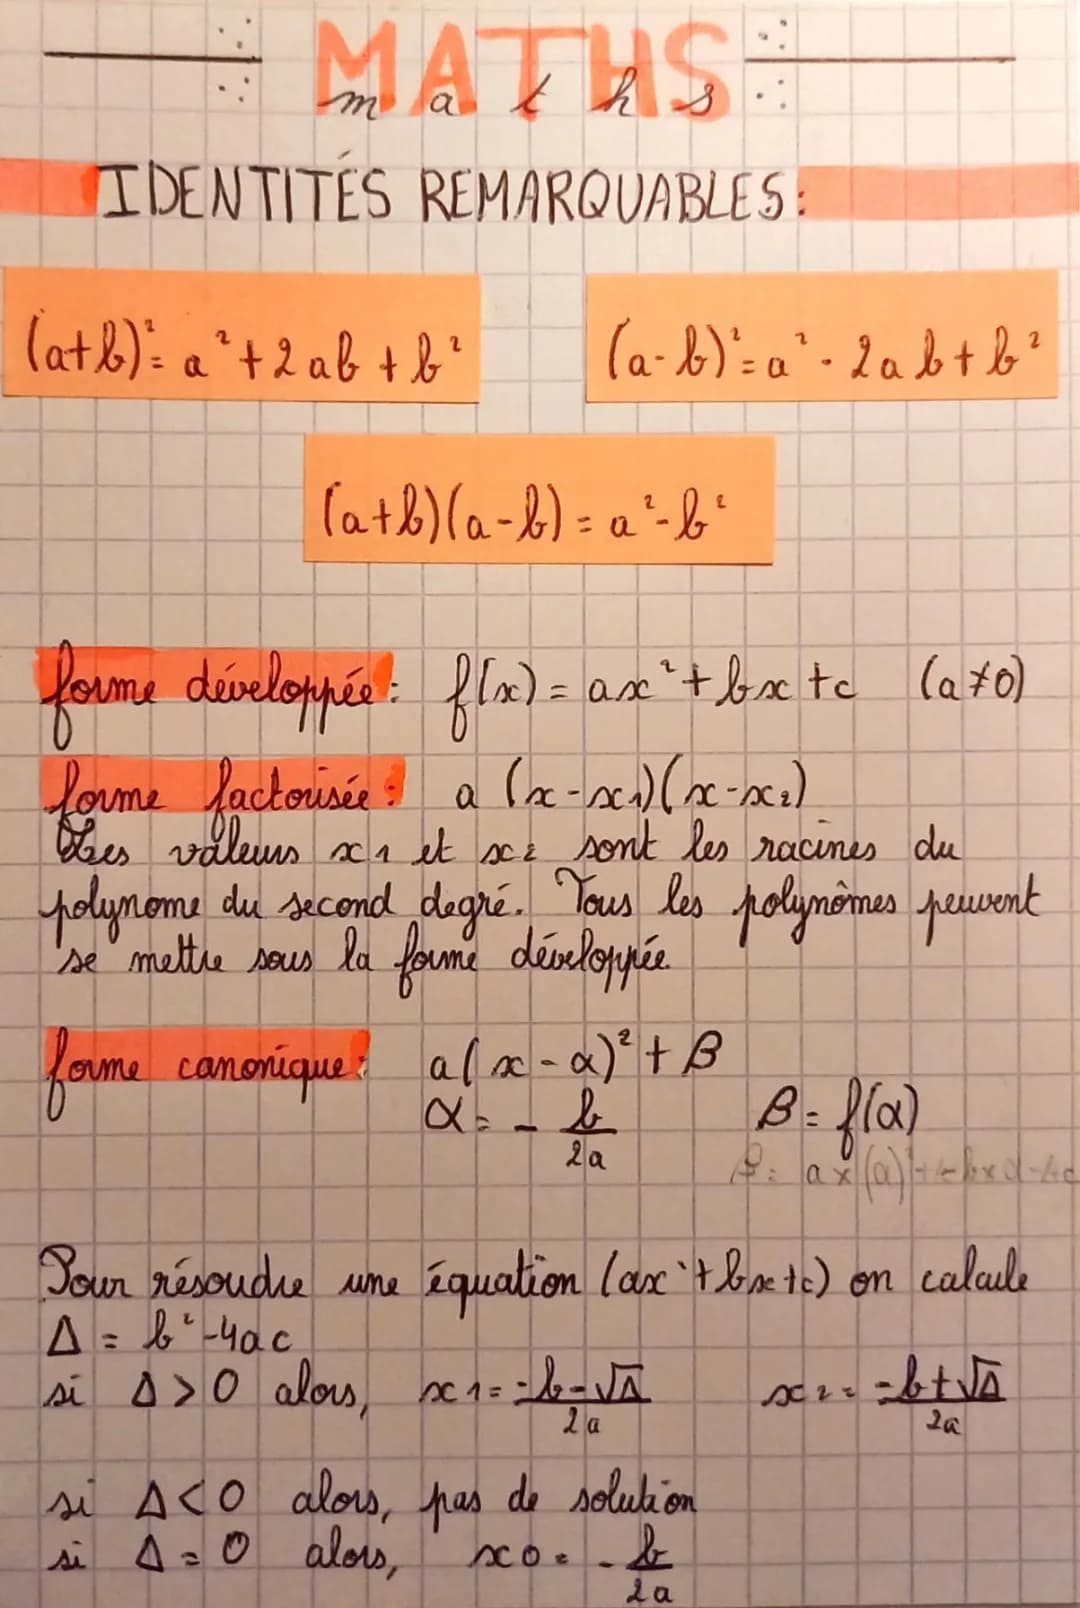 MATHS
maths
IDENTITÉS REMARQUABLES:
(a+b)²= a²+2ab+b²
(a-b)²=a²-2ab+b²
(a+b)(a-b)=a²-b²
forme développée: f(x)=ax²+bx+c (a≠0)
forme factorisée: a(x-x1)(x-x2)
Les valeurs x1 et x2 sont les racines du
polynome du second degré. Tous les polynômes peuvent
se mettre sous la forme développée
forme canonique: a(x-α)²+β
α=-b/2a β=f(α)
Pour résoudre une équation (ax²+bx+c) on calcule
Δ=b²-4ac
si Δ>0 alors, x1=-b-√Δ/2a x2=-b+√Δ/2a
si Δ<0 alors, pas de solution
si Δ=0 alors, x0=-b/2a